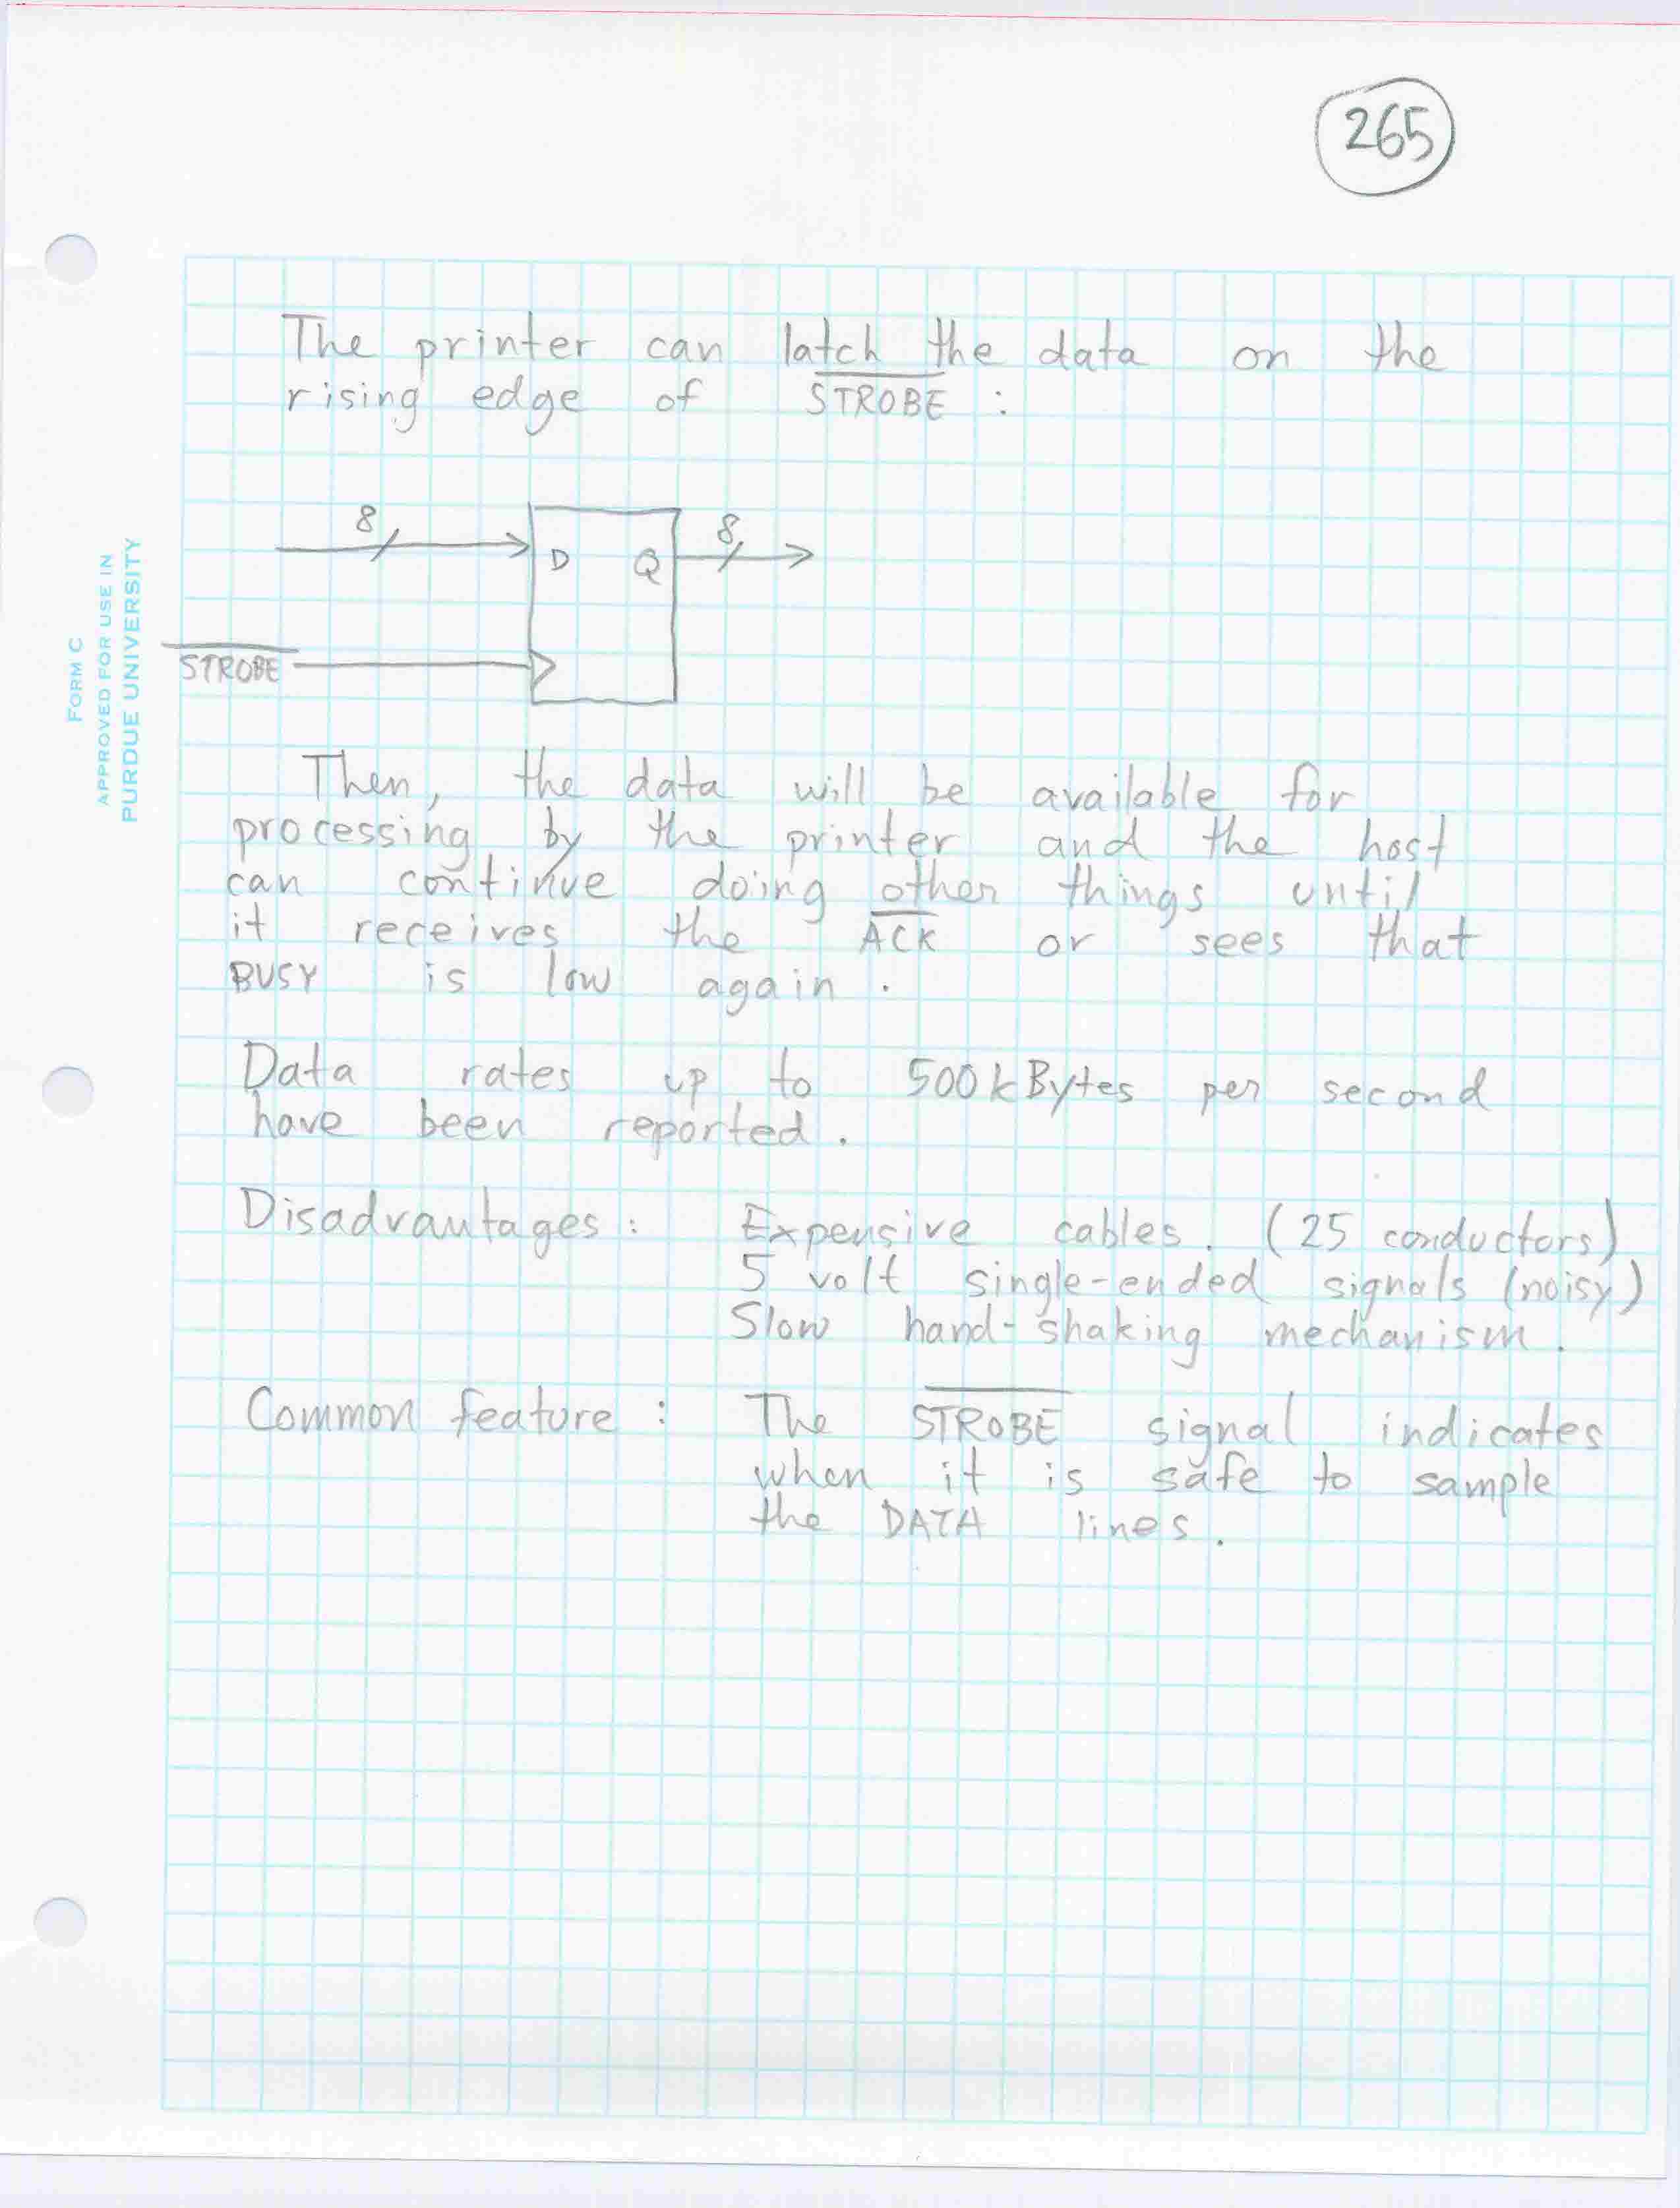 265
The printer can latch the data on the
rising edge of S̅T̅R̅O̅B̅E̅ :
8
8
D Q
S̅T̅R̅O̅B̅E̅
FORM C
APPROVED FOR USE IN
PURDUE UNIVERSITY
Then, the data will be available for
processing by the printer and the host
can continue doing other things until
it receives the A̅C̅K̅ or sees that
BUSY is low again.
Data rates up to 500kBytes per second
have been reported.
Disadvantages: Expensive cables. (25 conductors)
5 volt single-ended signals (noisy)
Slow hand-shaking mechanism.
Common feature: The S̅T̅R̅O̅B̅E̅ signal indicates
when it is safe to sample
the DATA lines.